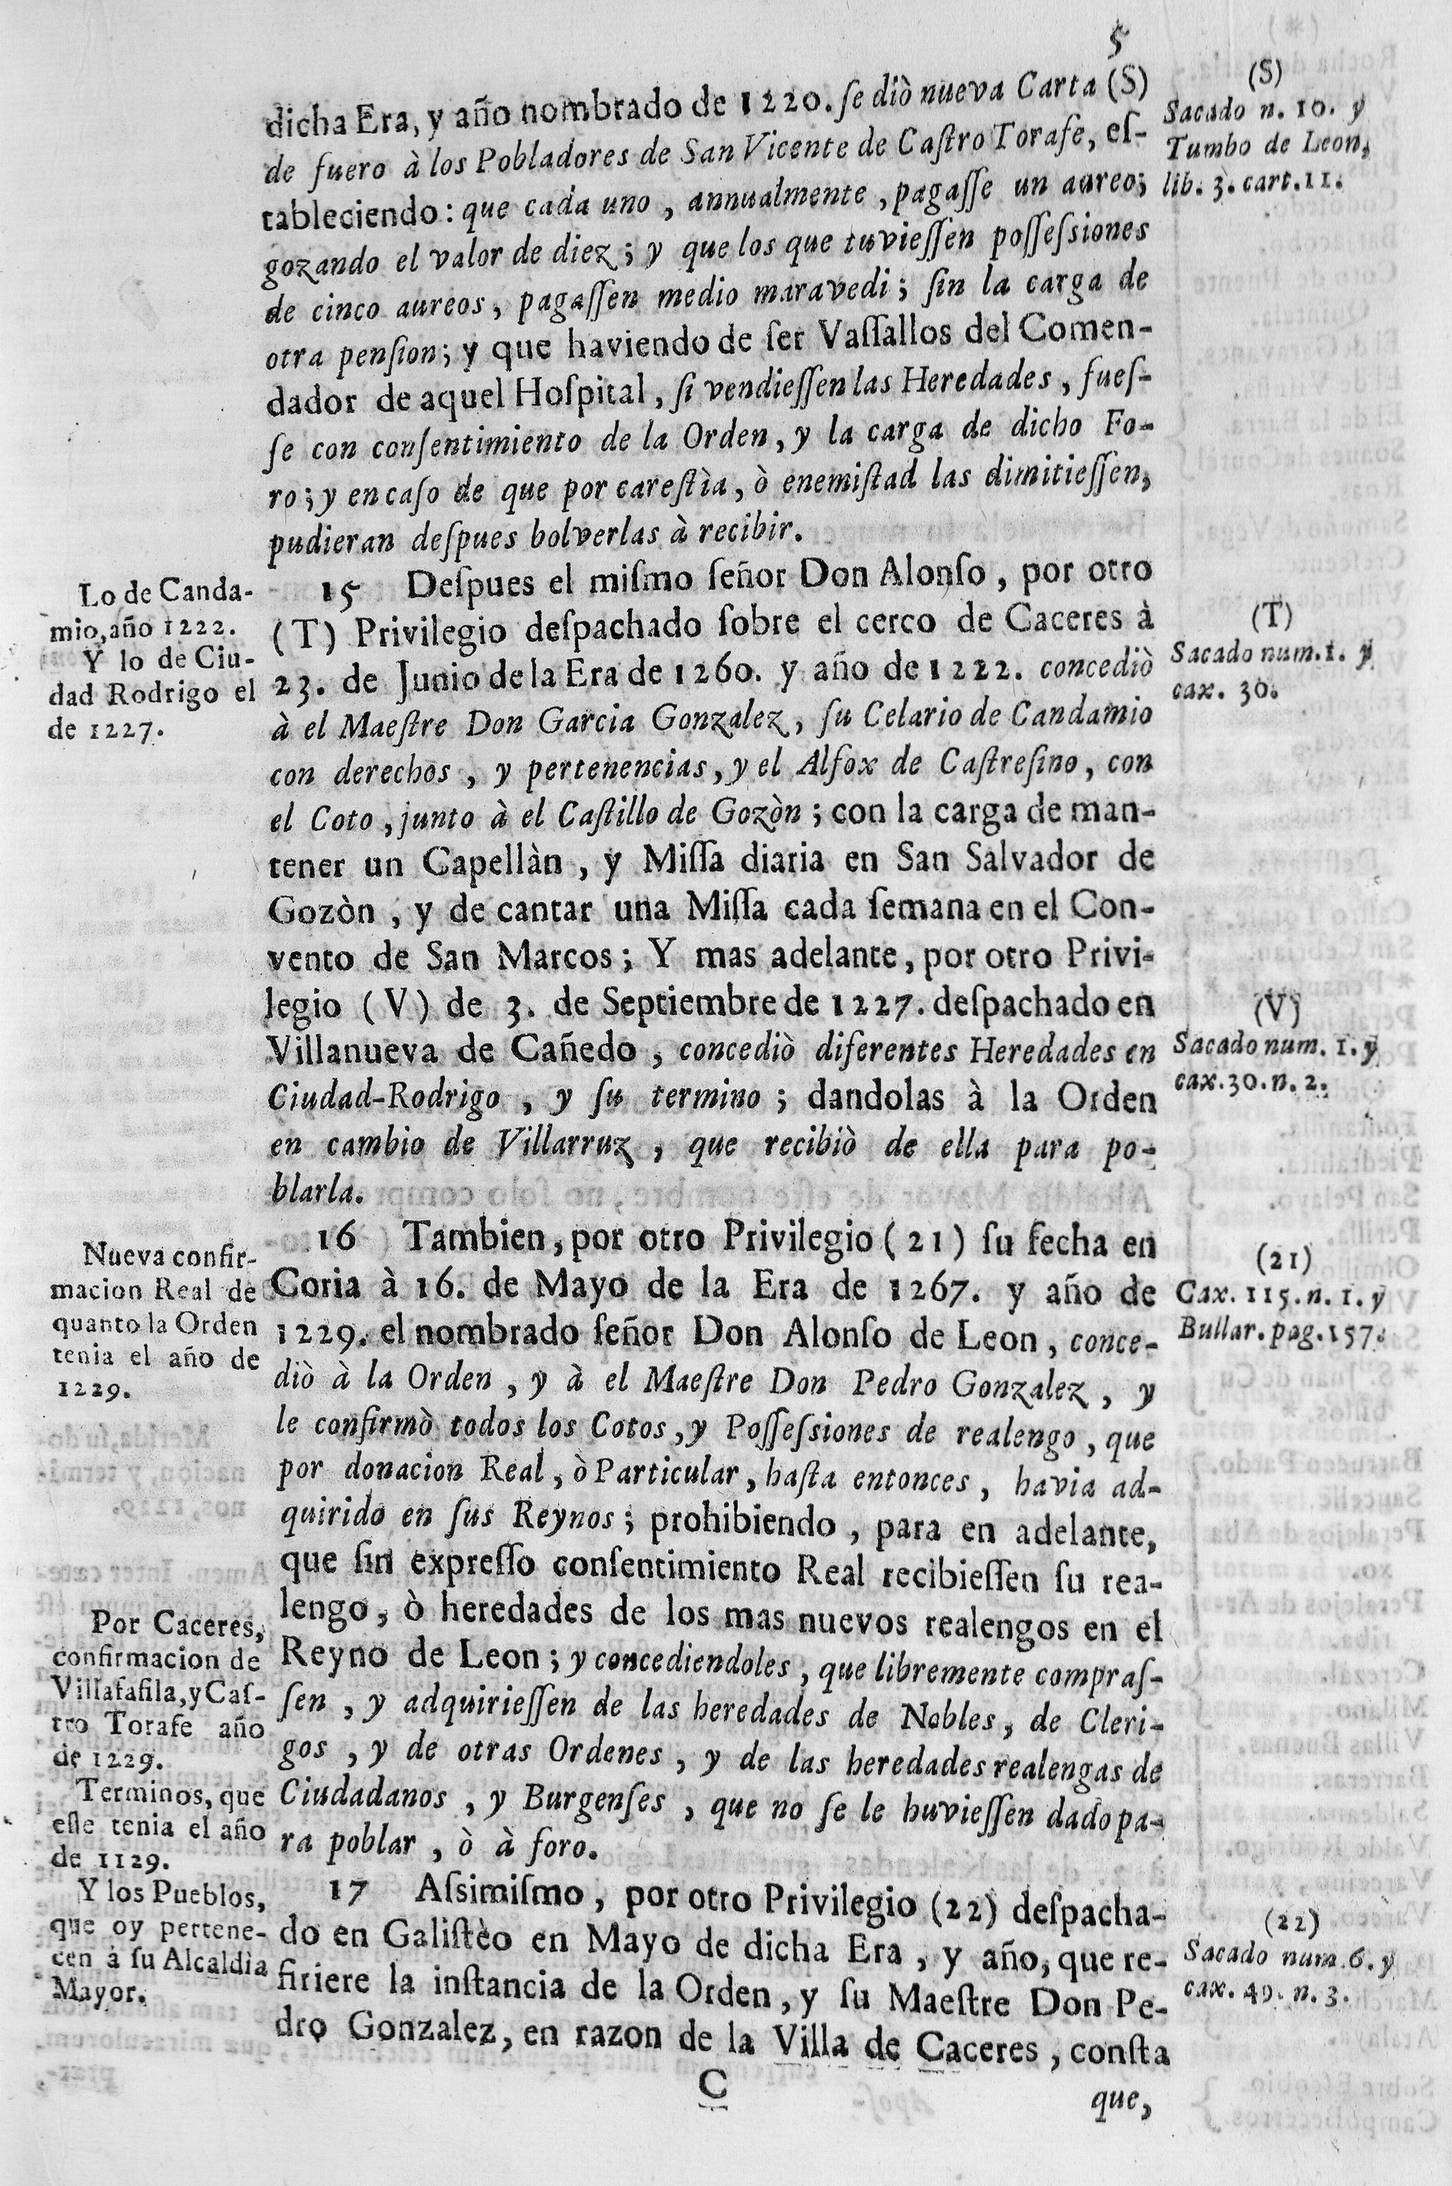 5
dicha Era, y año nombrado de 1220. ſe diò nueva Carta (S)
de fuero à los Pobladores de San Vicente de Caſtro Torafe, eſ-
tableciendo: que cada uno, annualmente, pagaſſe un aureo;
gozando el valor de diez; y que los que tuvieſſen poſſeſsiones
de cinco aureos, pagaſſen medio maravedi; ſin la carga de
otra penſion; y que haviendo de ſer Vaſſallos del Comen-
dador de aquel Hoſpital, ſi vendieſſen las Heredades, fueſ-
ſe con conſentimiento de la Orden, y la carga de dicho Fo-
ro; y en caſo de que por careſtìa, ò enemiſtad las dimitieſſen,
pudieran deſpues bolverlas à recibir.
15 Deſpues el miſmo ſeñor Don Alonſo, por otro
(T) Privilegio deſpachado ſobre el cerco de Caceres à
23. de Junio de la Era de 1260. y año de 1222. concediò
à el Maeſtre Don Garcia Gonzalez, ſu Celario de Candamio
con derechos, y pertenencias, y el Alfox de Caſtreſino, con
el Coto, junto à el Caſtillo de Gozòn; con la carga de man-
tener un Capellàn, y Miſſa diaria en San Salvador de
Gozòn, y de cantar una Miſſa cada ſemana en el Con-
vento de San Marcos; Y mas adelante, por otro Privi-
legio (V) de 3. de Septiembre de 1227. deſpachado en
Villanueva de Cañedo, concediò diferentes Heredades en
Ciudad-Rodrigo, y ſu termino; dandolas à la Orden
en cambio de Villarruz, que recibiò de ella para po-
blarla.
16 Tambien, por otro Privilegio (21) ſu fecha en
Coria à 16. de Mayo de la Era de 1267. y año de
1229. el nombrado ſeñor Don Alonſo de Leon, conce-
diò à la Orden, y à el Maeſtre Don Pedro Gonzalez, y
le confirmò todos los Cotos, y Poſſeſsiones de realengo, que
por donacion Real, ò Particular, haſta entonces, havia ad-
quirido en ſus Reynos; prohibiendo, para en adelante,
que ſin expreſſo conſentimiento Real recibieſſen ſu rea-
lengo, ò heredades de los mas nuevos realengos en el
Reyno de Leon; y concediendoles, que libremente compraſ-
ſen, y adquirieſſen de las heredades de Nobles, de Cleri-
gos, y de otras Ordenes, y de las heredades realengas de
Ciudadanos, y Burgenſes, que no ſe le huvieſſen dado pa-
ra poblar, ò à foro.
17 Aſsimiſmo, por otro Privilegio (22) deſpacha-
do en Galiſtèo en Mayo de dicha Era, y año, que re-
firiere la inſtancia de la Orden, y ſu Maeſtre Don Pe-
dro Gonzalez, en razon de la Villa de Caceres, conſta
C
que,
Lo de Canda-
mio, año 1222.
Y lo de Ciu-
dad Rodrigo el
de 1227.
Nueva confir-
macion Real de
quanto la Orden
tenia el año de
1229.
Por Caceres,
confirmacion de
Villafafila, y Caſ-
tro Torafe año
de 1229.
Terminos, que
eſte tenia el año
de 1129.
Y los Pueblos,
que oy pertene-
cen à ſu Alcaldìa
Mayor.
(S)
Sacado n. 10. y
Tumbo de Leon,
lib. 3. cart. 11.
(T)
Sacado num. 1. y
cax. 30.
(V)
Sacado num. 1. y
cax. 30. n. 2.
(21)
Cax. 115. n. 1. y
Bullar. pag. 157.
(22)
Sacado num. 6. y
cax. 49. n. 3.